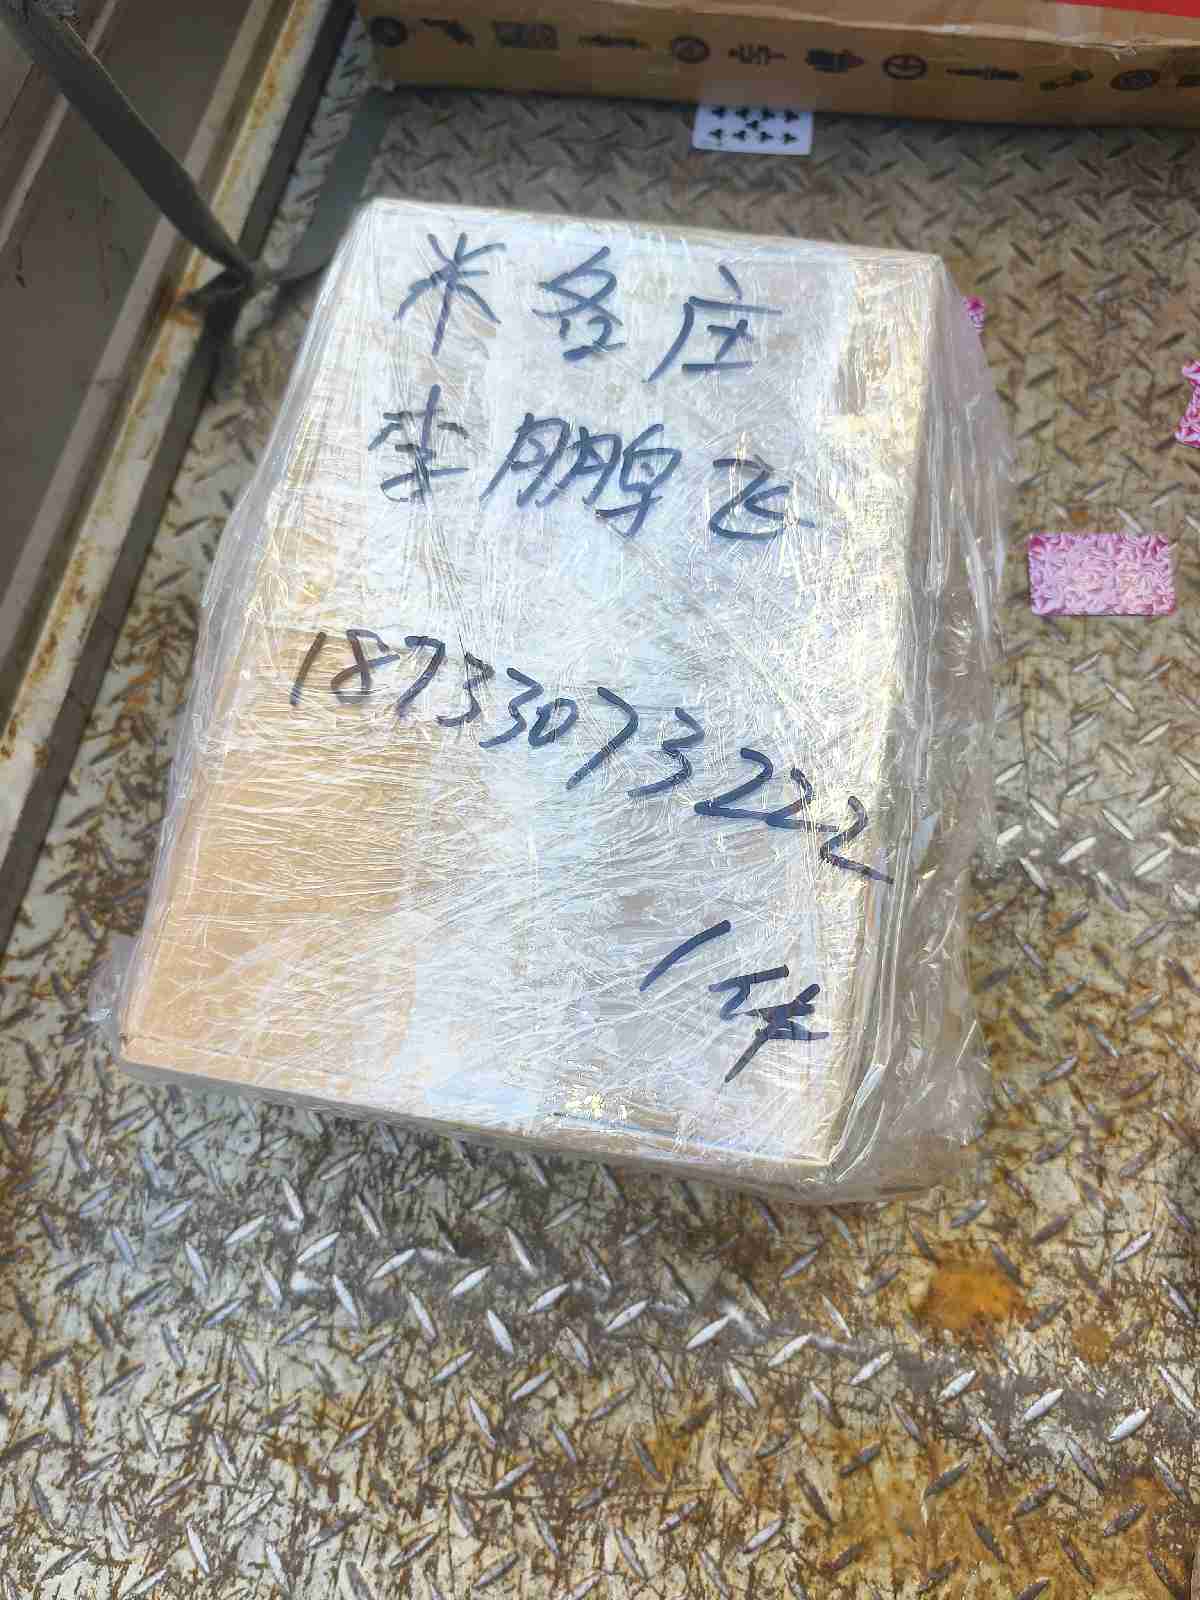 米各庄
李鹏飞
18733073222
1件